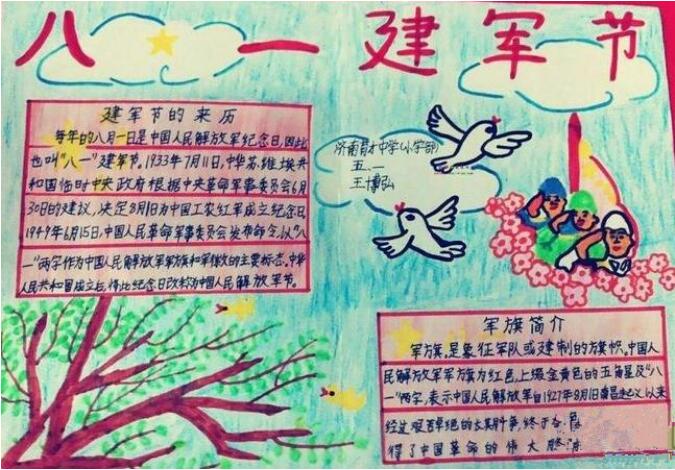 八一建军节
建军节的来历
每年的八月一日是中国人民解放军纪念日,因此
也叫“八一”建军节。1933年7月11日,中华苏维埃共
和国临时中央政府根据中央革命军事委员会6月
30日的建议,决定8月1日为中国工农红军成立纪念日
1949年6月15日,中国人民革命军事委员会发布命令,以“八
一”两字作为中国人民解放军军旗和军徽的主要标志。中华
人民共和国成立后,将此纪念日改称为中国人民解放军节。
济南育才中学(小学部)
五.一
王博弘
军旗简介
军旗,是象征军队或建制的旗帜。中国人
民解放军军旗为红色,上缀金黄色的五角星及“八
一”两字,表示中国人民解放军自1927年8月1日南昌起义以来
经过艰苦卓绝的
终于
得了中国革命的伟大胜